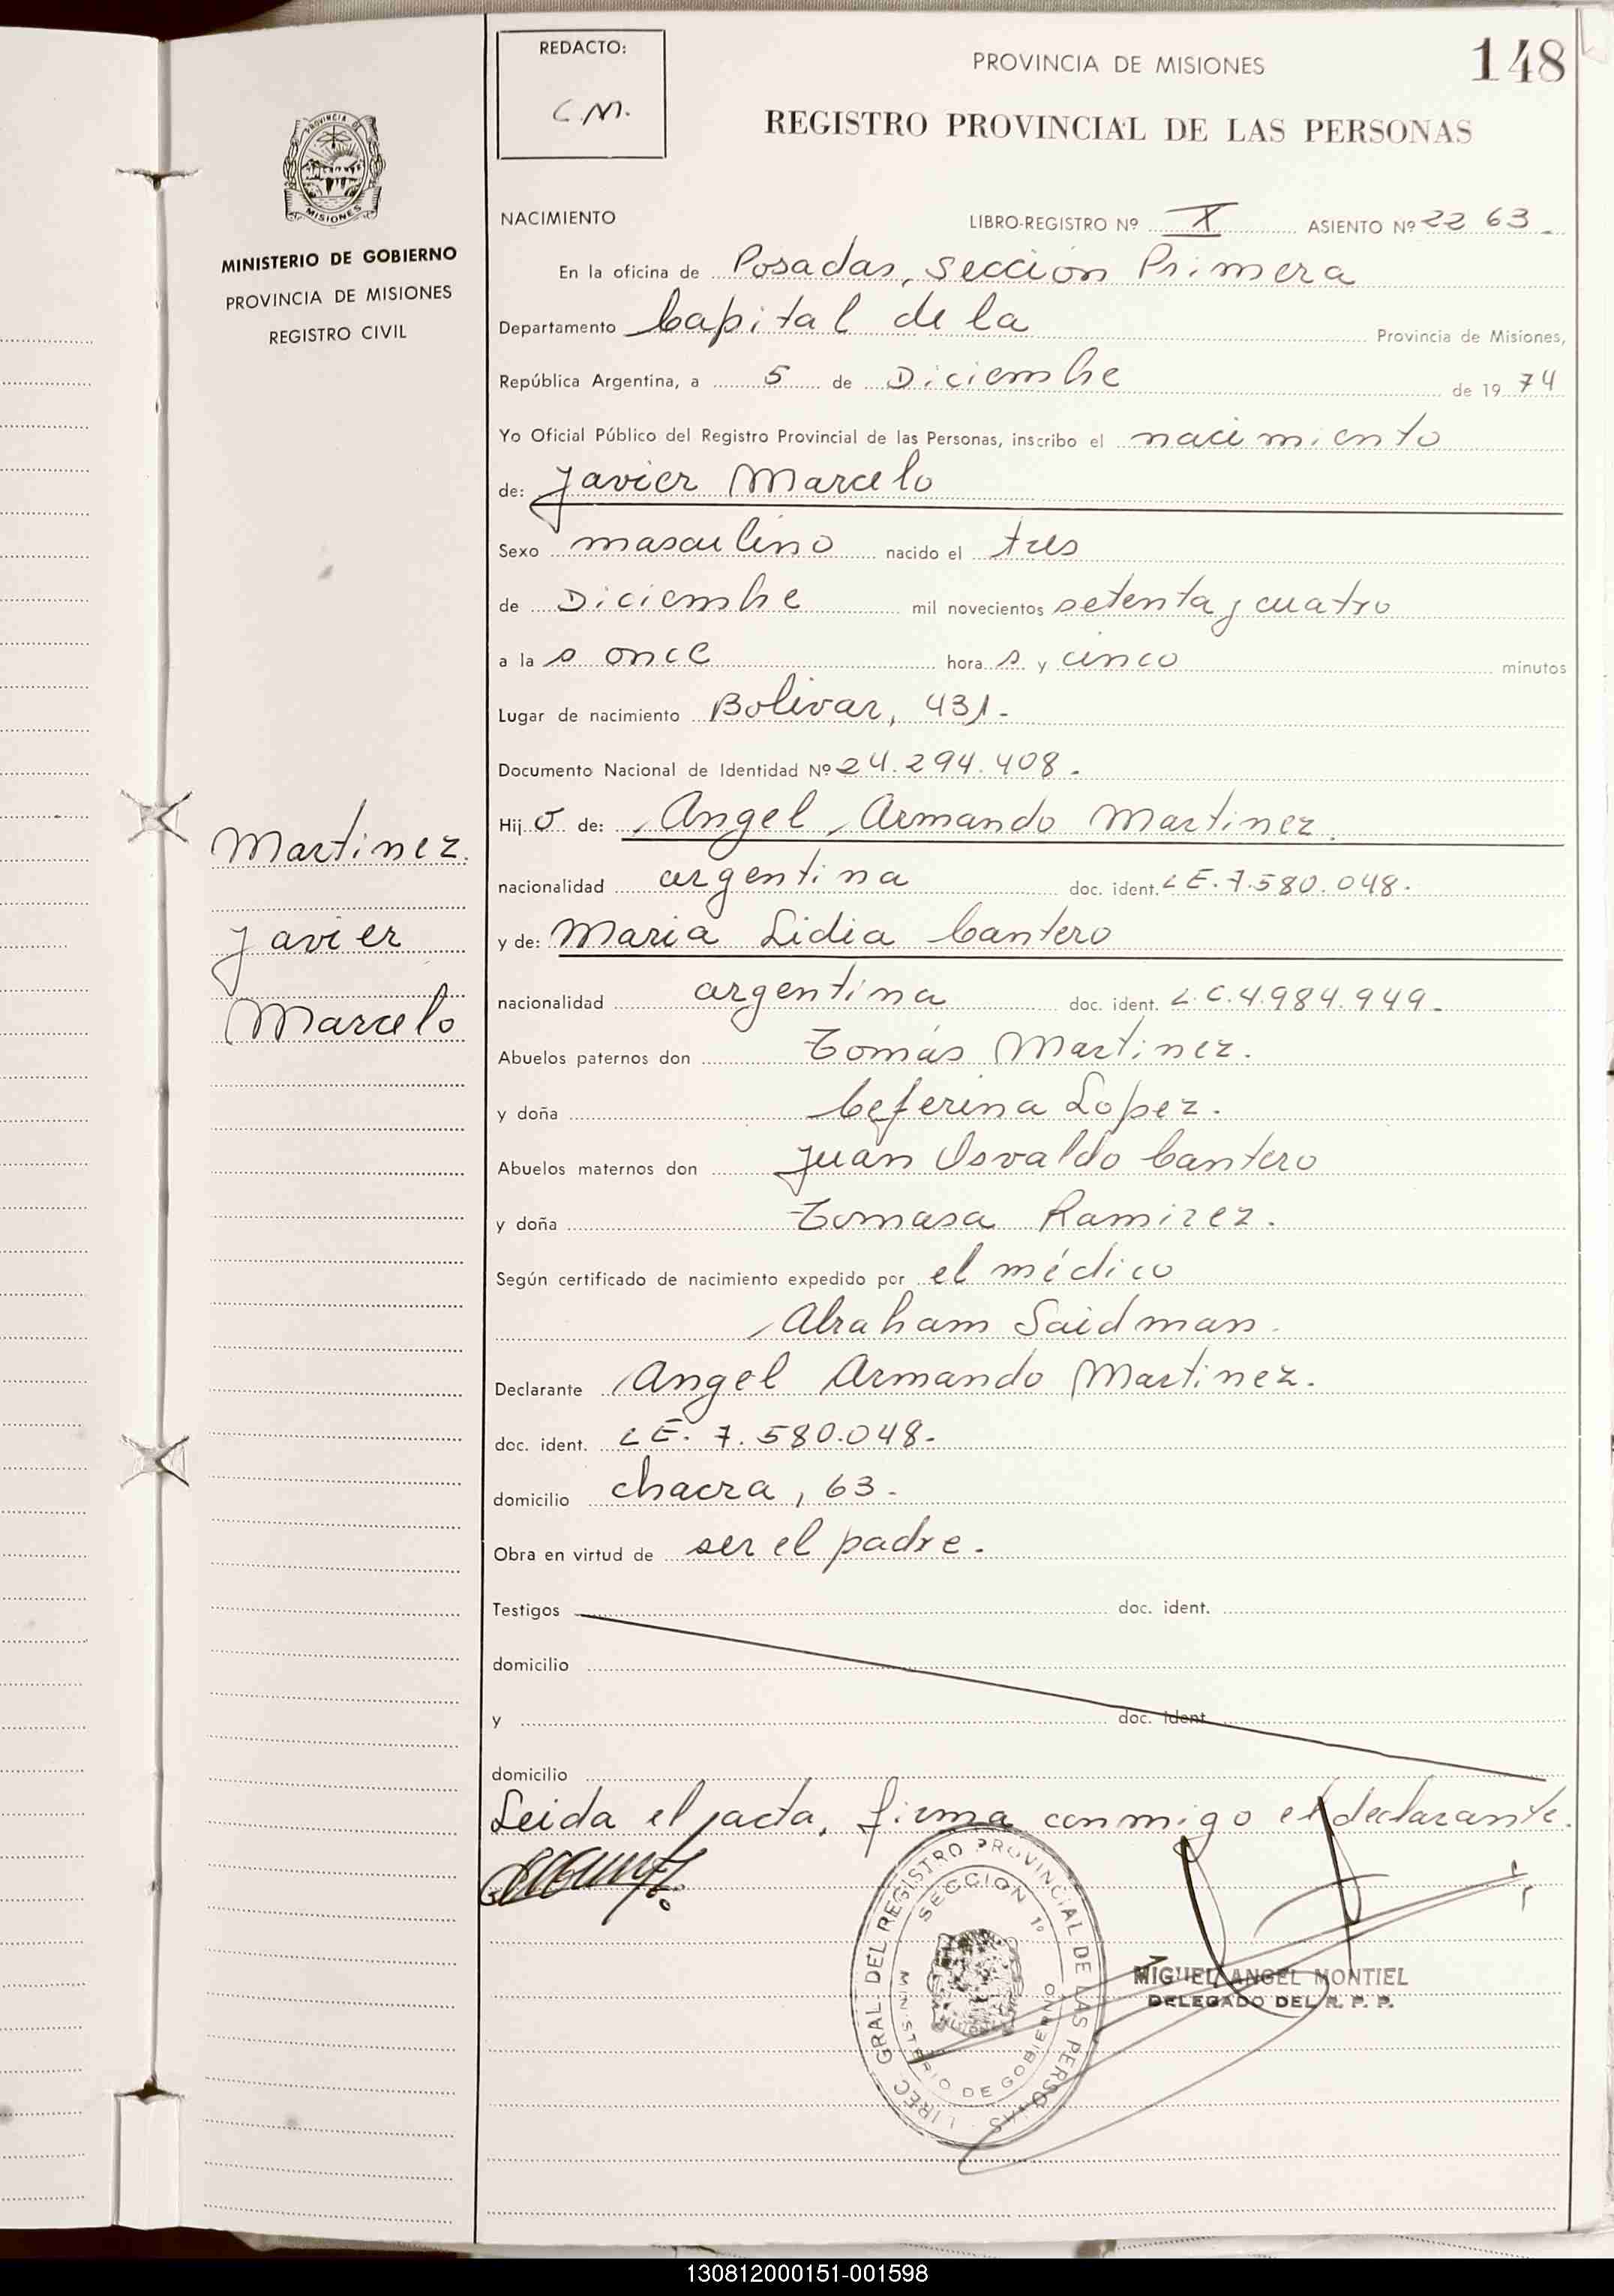 REDACTO:
C.M.
PROVINCIA DE MISIONES
148
REGISTRO PROVINCIAL DE LAS PERSONAS
PROVINCIA DE
MISIONES
MINISTERIO DE GOBIERNO
PROVINCIA DE MISIONES
REGISTRO CIVIL
Martinez.
Javier
Marcelo
NACIMIENTO LIBRO-REGISTRO Nº X ASIENTO Nº 2263
En la oficina de Posadas, sección Primera
Departamento Capital de la Provincia de Misiones,
República Argentina, a 5 de Diciembre de 1974
Yo Oficial Público del Registro Provincial de las Personas, inscribo el nacimiento
de: Javier Marcelo
Sexo masculino nacido el tres
de Diciembre mil novecientos setenta y cuatro
a las once horas y cinco minutos
Lugar de nacimiento Bolivar, 431.
Documento Nacional de Identidad Nº 24.294.408.
Hijo de: Angel Armando Martinez
nacionalidad argentina doc. ident. L E. 7.580.048.
y de: Maria Lidia Cantero
nacionalidad argentina doc. ident. L.C. 4.984.949.
Abuelos paternos don Tomás Martinez.
y doña Ceferina Lopez.
Abuelos maternos don Juan Osvaldo Cantero
y doña Tomasa Ramirez.
Según certificado de nacimiento expedido por el médico
Abraham Saidman.
Declarante Angel Armando Martinez.
doc. ident. L E. 7.580.048.
domicilio chacra, 63.
Obra en virtud de ser el padre.
Testigos doc. ident.
domicilio
y doc. ident
domicilio
Leida el acta, firma conmigo el declarante.
GRAL. DEL REGISTRO PROVINCIAL DE LAS PERSONAS
SECCION 1º
MINISTERIO DE GOBIERNO
MIGUEL ANGEL MONTIEL
DELEGADO DEL R. P. P.
130812000151-001598